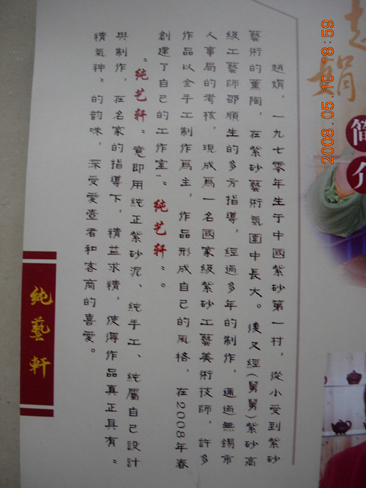 赵娟
简介
赵娟，一九七零年生于中國紫砂第一村，從小受到紫砂
藝術的薰陶，在紫砂藝術氛圍中長大。後又經(舅舅)紫砂高
級工藝師邵順生的多方指導，經過多年的制作，通過無錫市
人事局的考核，現成爲一名國家級紫砂工藝美術技師，許多
作品以全手工制作爲主，作品形成自己的風格，在2008年春
創建了自己的工作室“纯艺轩”。
“纯艺轩”意即用純正紫砂泥、純手工、純屬自己設計
與制作，在名家的指導下，精益求精，使得作品真正具有“
精氣神”的韵味，深受愛壺者和客商的喜愛。
純藝軒
2008.05.10 18:59